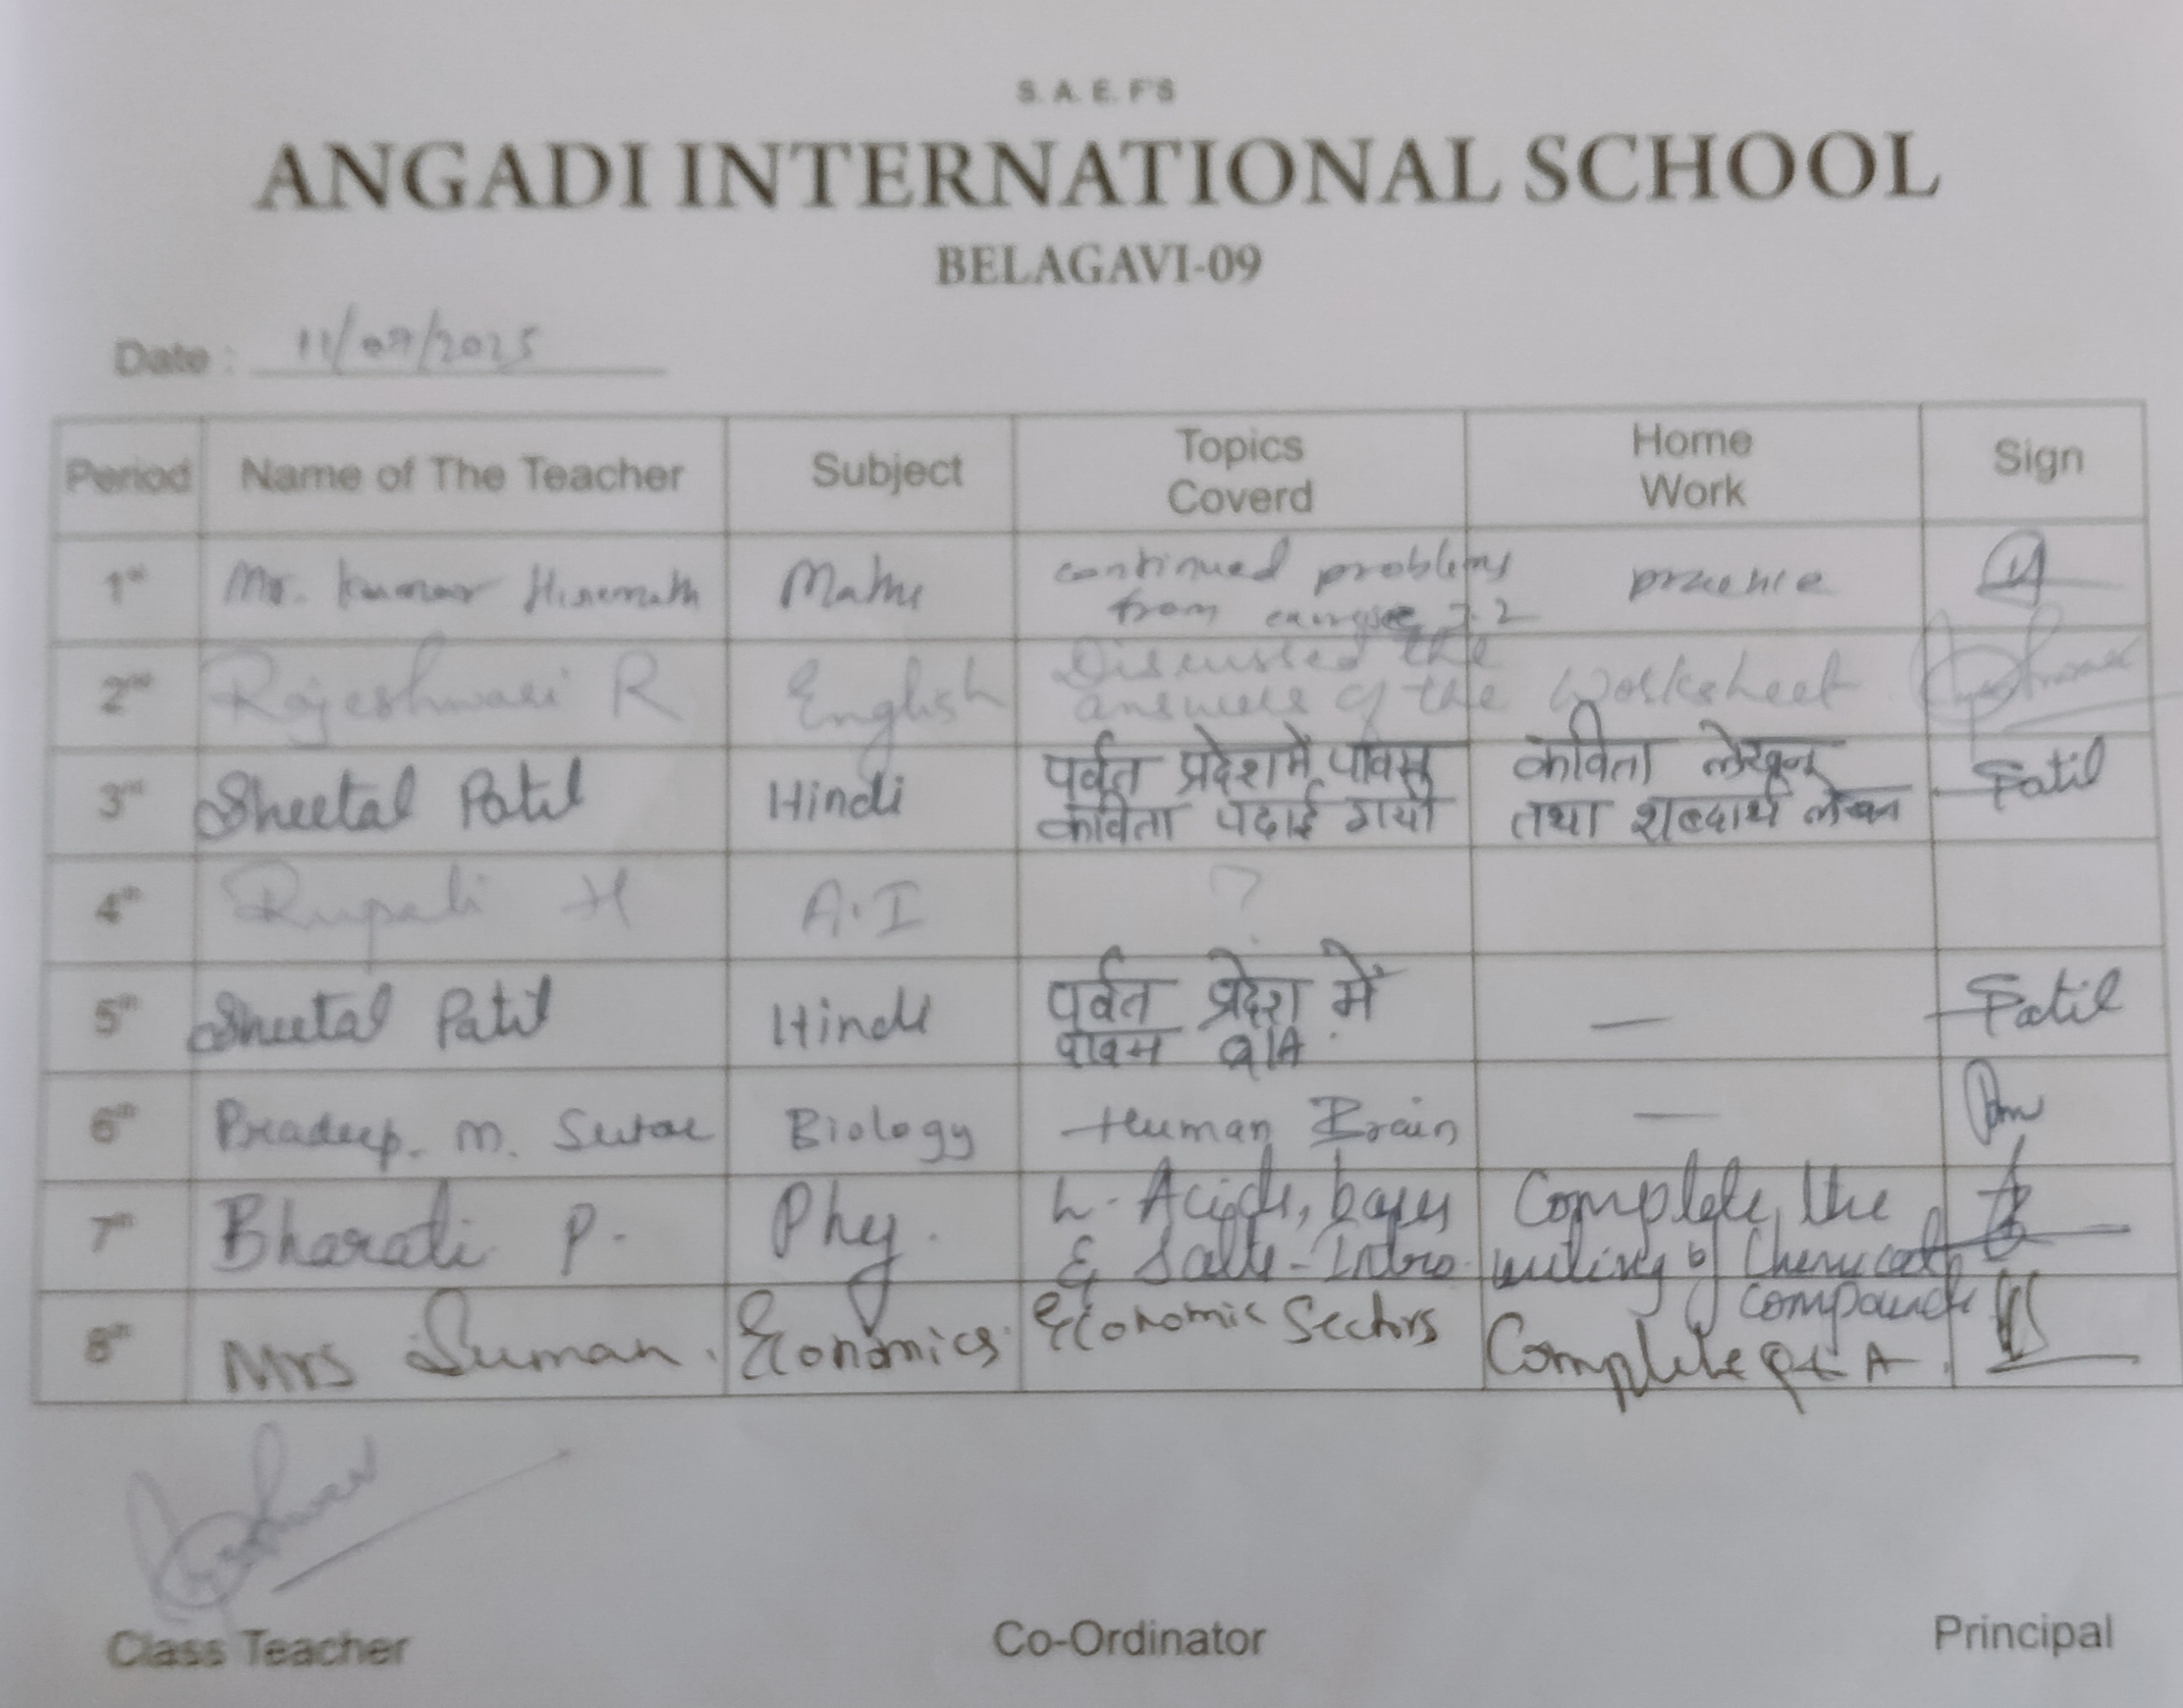 S. A. E. F'S
ANGADI INTERNATIONAL SCHOOL
BELAGAVI-09
Date : 11/07/2025
Period Name of The Teacher Subject Topics Coverd Home Work Sign
1st Mr. Kumar Hiremath Maths continued problems practice
from exercise 3.2
2nd Rajeshwari R English Discussed the
answers of the Worksheet
3rd Sheetal Patil Hindi पर्वत प्रदेश में पावस कविता लेखन Patil
कविता पढाई गयी तथा शब्दार्थ लेखन
4th Rupali H A.I ?
5th Sheetal Patil Hindi पर्वत प्रदेश में — Patil
पावस Q/A.
6th Pradeep. M. Sutar Biology Human Brain —
7th Bharati P. Phy. L- Acids, bases Complete the
& Salts - Intro. writing of Chemical
compounds
8th Mrs Suman. Economics. Economic Sectors Complete Q & A.
Class Teacher Co-Ordinator Principal